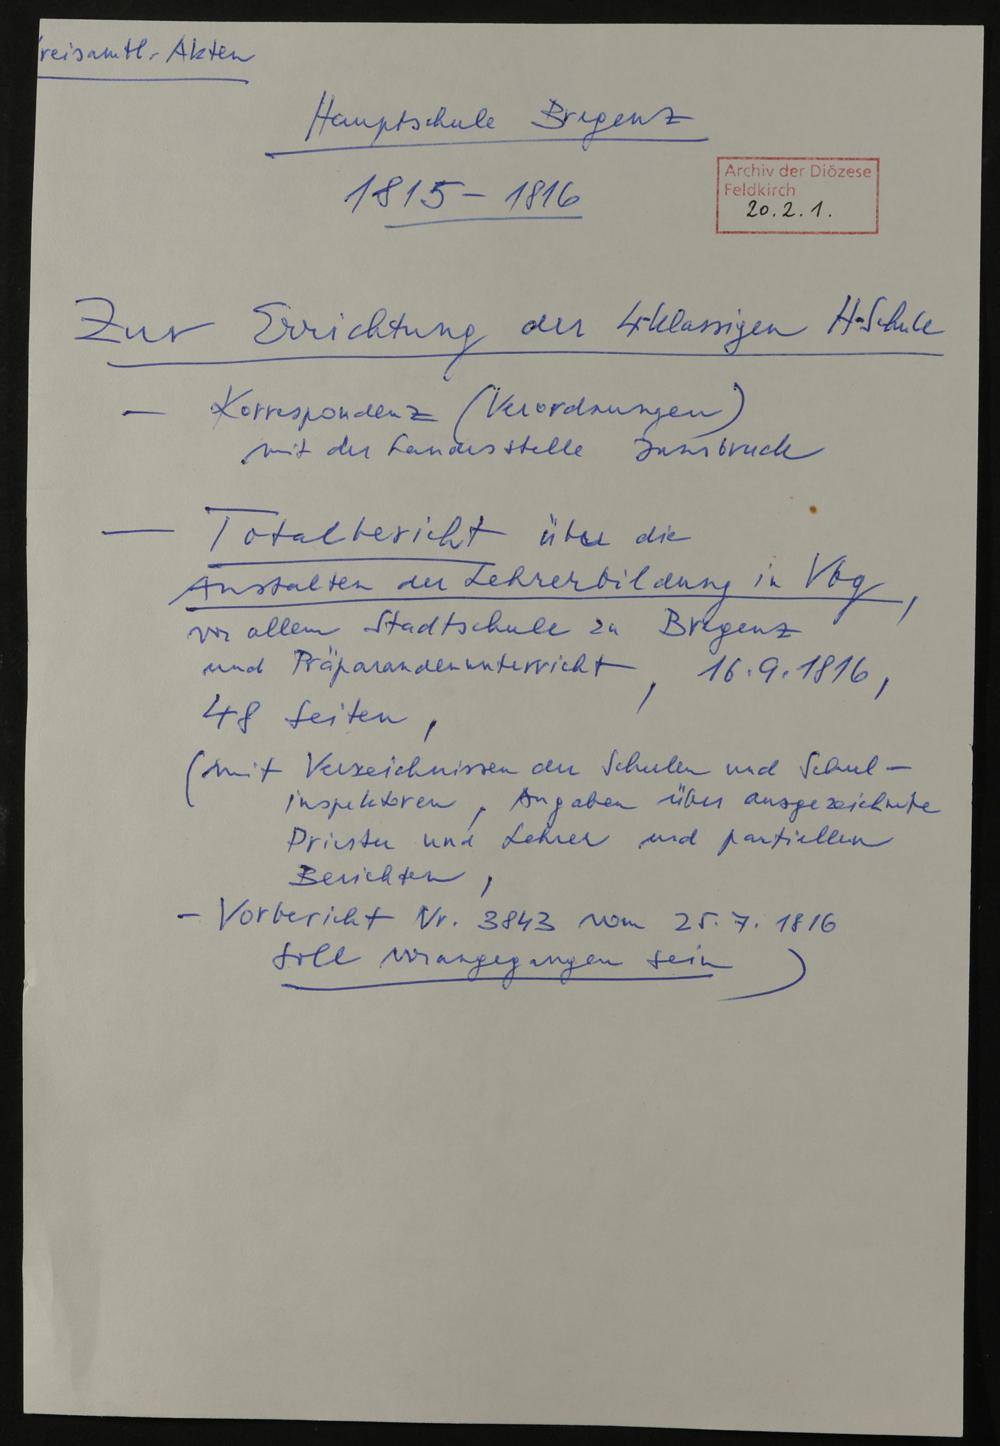 reisamtl. Akten
Hauptschule Bregenz
1815 - 1816
Archiv der Diözese
Feldkirch
20.2.1.
Zur Errichtung der 4klassigen H-Schule
— Korrespondenz (Verordnungen)
mit der Landesstelle Innsbruck
— Totalbericht über die
Anstalten der Lehrerbildung in Vbg,
vor allem Stadtschule zu Bregenz
und Präparandenunterricht, 16.9.1816,
48 Seiten,
(mit Verzeichnissen der Schulen und Schul-
inspektoren, Angaben über ausgezeichnete
Priester und Lehrer und partiellen
Berichten,
- Vorbericht Nr. 3843 vom 25.7.1816
soll vorangegangen sein)